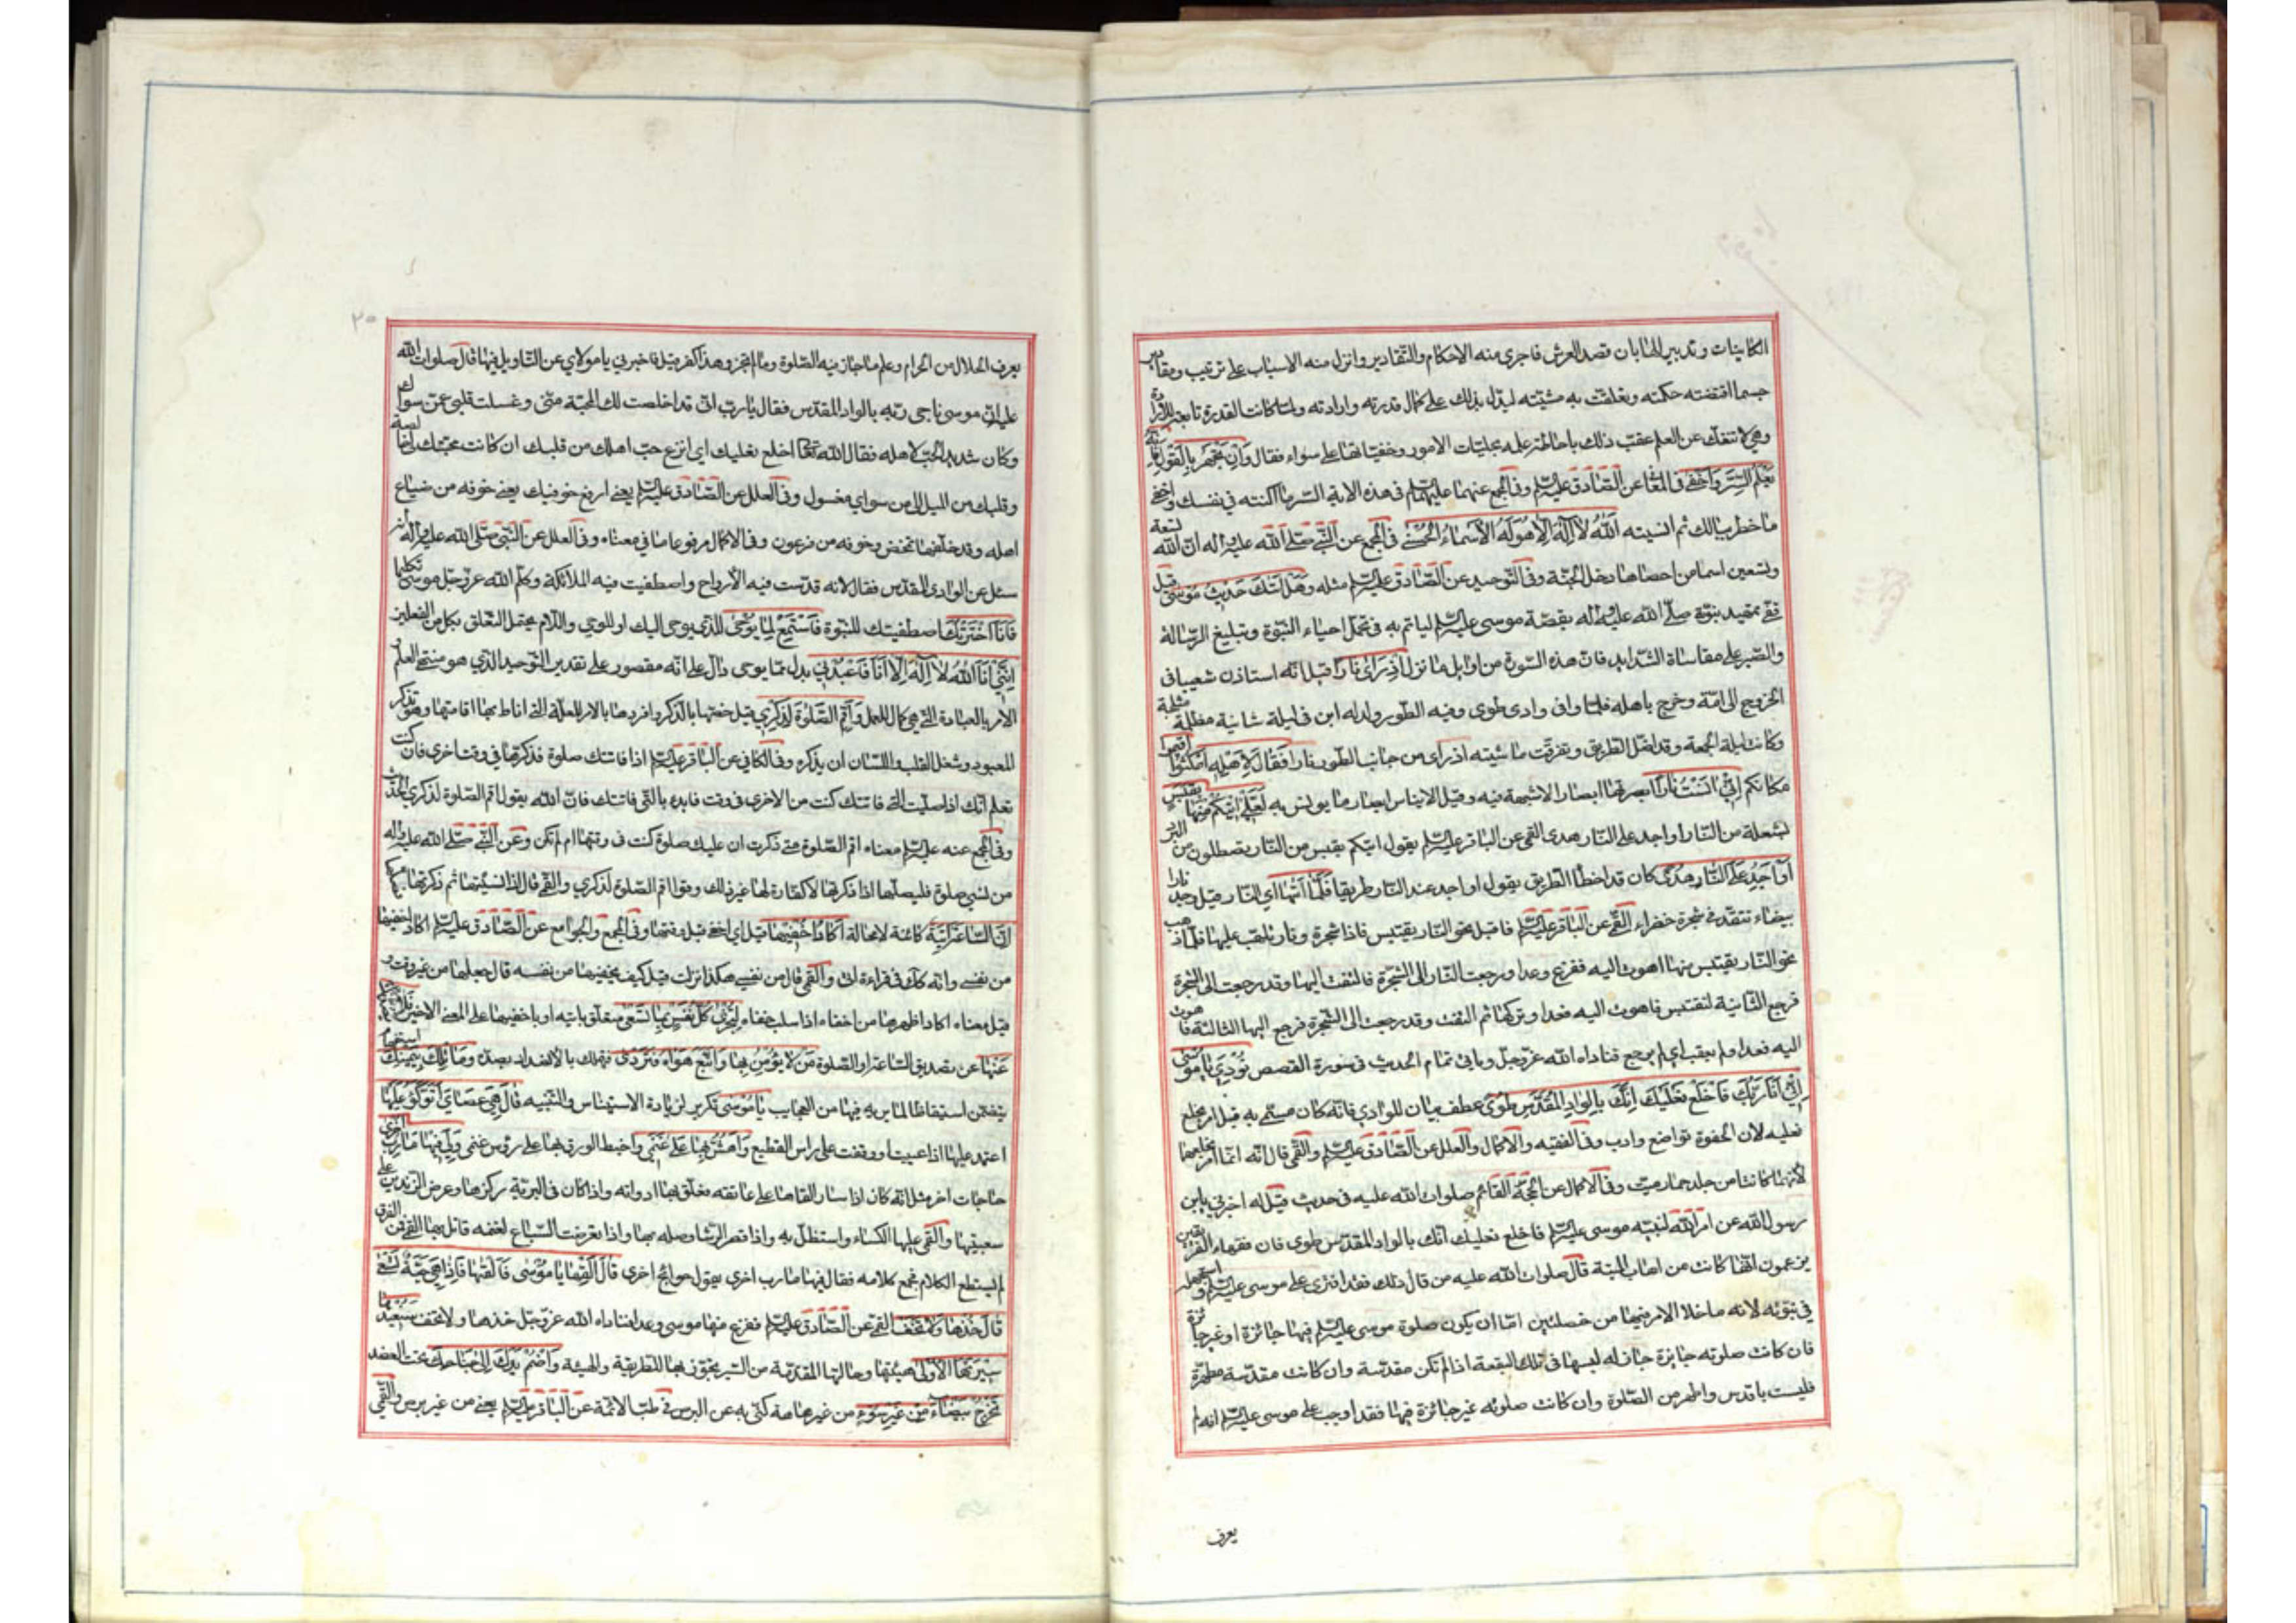 الكاينات و تدبير الهابان قصد العرش فاجرى منه الاحكام والتقادير وانزل منه الاسباب على ترتيب ومقادير
حسبما اقتضته حكمته وتعلقت به مشيته ليدل بذلك على كمال قدرته وارادته ولما كانت القدرة تابعة للارادة
وهي لا تنفك عن العلم عقب ذلك باحاطة علمه بجليات الامور وخفياتها على سواء فقال وَاِنْ تَجْهَرْ بِالْقَوْلِ فَاِنَّهُ
يَعْلَمُ السِّرَّ وَاَخْفى في المعا عن الصّادق عليه السلم وفي المجمع عنهما عليهما السلم في هذه الاية السر ما اكننته في نفسك واخفى
ما خطر ببالك ثم انسيته اَللهُ لاۤ اِلهَ اِلاّ هُوَ لَهُ الْاَسْماۤءُ الْحُسْنى في المجمع عن النّبي صلّى الله عليه واله ان الله تسعة
وتسعين اسما من احصاها دخل الجنّة وفي التّوحيد عن الصّادق عليه السلم مثله وَهَلْ اَتٰكَ حَدِيثُ مُوسٰى قيل
قفى تمهيد نبوّة صلّى الله عليه واله بقصّة موسى عليه السلم ليأتم به في تحمّل اعباء النبّوة وتبليغ الرّسالة
والصّبر على مقاساة الشّدايد فان هذه السّورة من اوايل ما نزل اِذْ رَاٰى نَاراً قيل انّه استاذن شعيبا في
الخروج الى امّه وخرج باهله فلمّا وافى وادى طوى وفيه الطّور ولد له ابن في ليلة شاتية مظلمة مثلجة
وكانت ليلة الجمعة وقد اضلّ الطّريق وتفرّقت ماشيته اذ راى من جانب الطّور نارا فَقالَ لِاَهْلِهِ امْكُثُوا اقيموا
مكانكم اِنّي انَسْتُ ناراً ابصرتها ابصارا لا شبهة فيه وقيل الايناس ابصار ما يونس به لَعَلّي اتِيكُمْ مِنْها بِقَبَسٍ
بشعلة من النّار او اجد على النّار هدى القمى عن الباقر عليه السلم يقول اتيكم بقبس من النّار تصطلون من البرد
اَوْ اَجِدُ عَلَى النّارِ هُدًى كان قد اخطأ الطّريق يقول او اجد عند النّار طريقا فَلَمّاۤ اَتٰها اي النّار قيل وجد نارا
بيضاء تتّقد في شجرة خضراء القمّى عن الباقر عليه السلم فاقبل نحو النّار يقتبس فاذا شجرة ونار تلتهب عليها فلمّا ذهب
نحو النّار يقتبس منها اهوت اليه ففزع وعدا ورجعت النّار الى الشّجرة فالتفت اليها وقد رجعت الى الشّجرة
فرجع الثّانية لتقتبس فاهوت اليه فعدا وتركها ثم التفت وقد رجعت الى الشّجرة فرجع اليها الثالثة فاهوت
اليه فعدا ولم يعقّب اي لم يرجع فناداه الله عزّ وجلّ وياتي تمام الحديث في سورة القصص نُودِيَ يا مُوسى
اِنّي اَنَا رَبُّكَ فَاخْلَعْ نَعْلَيْكَ اِنَّكَ بِالْوادِ الْمُقَدَّسِ طُوًى عطف بيان للوادي فانّه كان مسمّى به قيل امر بخلع
نعليه لان الحفوة تواضع وادب وفي الفقيه والاكمال والعلل عن الصّادق عليه السلم والقمّى قال انّه انّما امر بخلعهما
لانّهما كانتا من جلد حمار ميت وفي الاكمال عن الحجّة القائم صلوات الله عليه في حديث قيل له اخبرني يا بن
رسول الله عن امر الله لنبيّه موسى عليه السلم فاخلع نعليك انّك بالواد المقدّس طوى فان فقهاء الفريقين
يزعمون انّها كانت من اهاب الميتة قال صلوات الله عليه من قال ذلك فقد افترى على موسى عليه السلم واستجهله
في نبوّته لانه ما خلا الامر فيها من خصلتين امّا ان يكون صلوة موسى عليه السلم فيها جائزة او غير جائزة
فان كانت صلوته جايزة جاز له لبسها في تلك البقعة اذا لم تكن مقدّسة وان كانت مقدّسة مطهّرة
فليست باقدس واطهر من الصّلوة وان كانت صلوته غير جائزة فيها فقد اوجب على موسى عليه السلم انه لم
يعرف
٢٥
يعرف الحلال من الحرام وعلم ما جاز فيه الصّلوة وما لم تجز وهذا كفر قيل فاخبرني يا مولاي عن التّاويل فيها قال صلوات الله
عليه ان موسى ناجى ربّه بالواد المقدّس فقال يا ربّ انّي قد اخلصت لك المحبّة منّي وغسلت قلبي عمّن سواك
وكان شديد الحبّ لاهله فقال الله تعالى اخلع نعليك اي انزع حبّ اهلك من قلبك ان كانت محبّتك لي خالصة
وقلبك من الميل الى من سواي مغسول وفي العلل عن الصّادق عليه السلم يعني ارفع خوفيك يعني خوفه من ضياع
اهله وقد خلّفها تمخض وخوفه من فرعون وفي الاكمال مرفوعا ما في معناه وفي العلل عن النّبي صلّى الله عليه واله انه
سئل عن الوادى المقدّس فقال لانه قدّست فيه الأرواح واصطفيت فيه الملائكة وكلّم الله عزّ وجلّ موسى تكليما
وَاَنَا اخْتَرْتُكَ اصطفيتك للنبّوة فَاسْتَمِعْ لِما يُوحى للذّي يوحى اليك او للوحي واللّام يحتمل التّعلّق بكل من الفعلين
اِنَّنِيۤ اَنَا اللهُ لاۤ اِلهَ اِلاّۤ اَنَا فَاعْبُدْنِي بدل ممّا يوحى دالّ على انّه مقصور على تقدير التّوحيد الّذي هو منتهى العلم و
الامر بالعبادة التّي هي كمال العمل وَاَقِمِ الصَّلوةَ لِذِكْرِي قيل خصّها بالذّكر وافردها بالامر للعلّة التي اناط بها اقامتها وهو تذكّر
المعبود وشغل القلب واللّسان ان يذكره وفي الكافي عن الباقر عليه السلم اذا فاتتك صلوة فذكرتها في وقت اخرى فان كنت
تعلم انّك اذا صلّيت التّي فاتتك كنت من الاخرى في وقت فابدء بالتّي فاتتك فانّ الله يقول اقم الصّلوة لذكري الحديث
وفي المجمع عنه عليه السلم معناه اقم الصّلوة متى ذكرت ان عليك صلوة كنت في وقتها ام لم تكن وعن النّبي صلّى الله عليه واله
من نسي صلوة فليصلّها اذا ذكرها لا كفّارة لها غير ذلك وقرا اقم الصّلوة لذكري والقمّى قال اذا نسيتها ثم ذكرتها فصلّها
اِنَّ السّاعَةَ اتِيَةٌ كائنة لا محالة اَكادُ اُخْفِيها قيل اي اخفي وقتها وفي المجمع والجوامع عن الصّادق عليه السلم اكاد اخفيها
من نفسي وانّه كذلك في قراءة ابيّ والقمى قال من نفسي هكذا نزلت قيل كيف يخفيها من نفسه قال جعلها من غير وقت و
قيل معناه اكاد اظهرها من اخفاه اذا سلب خفاه لِتُجْزى كُلُّ نَفْسٍ بِما تَسْعى متعلّق باتية او باخفيها على المعنى الاخير فَلا يَصُدَّنَّكَ
عَنْها عن تصديق السّاعة او الصّلوة مَنْ لا يُؤْمِنُ بِها وَاتَّبَعَ هَوٰيهُ فَتَرْدى فتهلك بالانصداد بصدّه وَما تِلْكَ بِيَمِينِكَ استفهام
يتضمّن استيقاظا لما يريه فيها من العجايب يا مُوسى تكرير لزيادة الاستيناس والتّنبيه قالَ هِيَ عَصايَ اَتَوَكَّؤُ عَلَيْها
اعتمد عليها اذا اعييت او وقفت على راس القطيع وَاَهُشُّ بِها عَلى غَنَمِي واخبط الورق بها على رؤس غنمي وَلِيَ فِيها مَآرِبُ اُخْرى
حاجات اخر مثل انّه كان اذا سار القاها على عاتقه فعلّق بها ادواته واذا كان في البرّية ركزها وعرض الزّندين على
شعبتيها والقى عليها الكساء واستظلّ به واذا قصر الرّشا وصله بها واذا تعرضت السّباع لغنمه قاتل بها القمّى فمن الفرق
لم يستطع الكلام فجمع كلامه فقال فيها مارب اخرى يقول حوائج اخرى قالَ اَلْقِها يا مُوسى فَاَلْقٰها فَاِذا هِيَ حَيَّةٌ تَسْعى
قالَ خُذْها وَلا تَخَفْ القمّى عن الصّادق عليه السلم ففزع منها موسى وعدا فناداه الله عزّ وجلّ خذها ولا تخف سَنُعِيدُها
سِيرَتَهَا الْاُولى هيئتها وحالتها المتقدّمة من السّير تجوّز بها للطّريقة والهيئة وَاضْمُمْ يَدَكَ اِلى جَناحِكَ تحت العضد
تَخْرُجْ بَيْضاۤءَ مِنْ غَيْرِ سُوۤءٍ من غير عاهة كنّى به عن البرص في طبّ الائمّة عن الباقر عليه السلم يعني من غير برص والقمّى